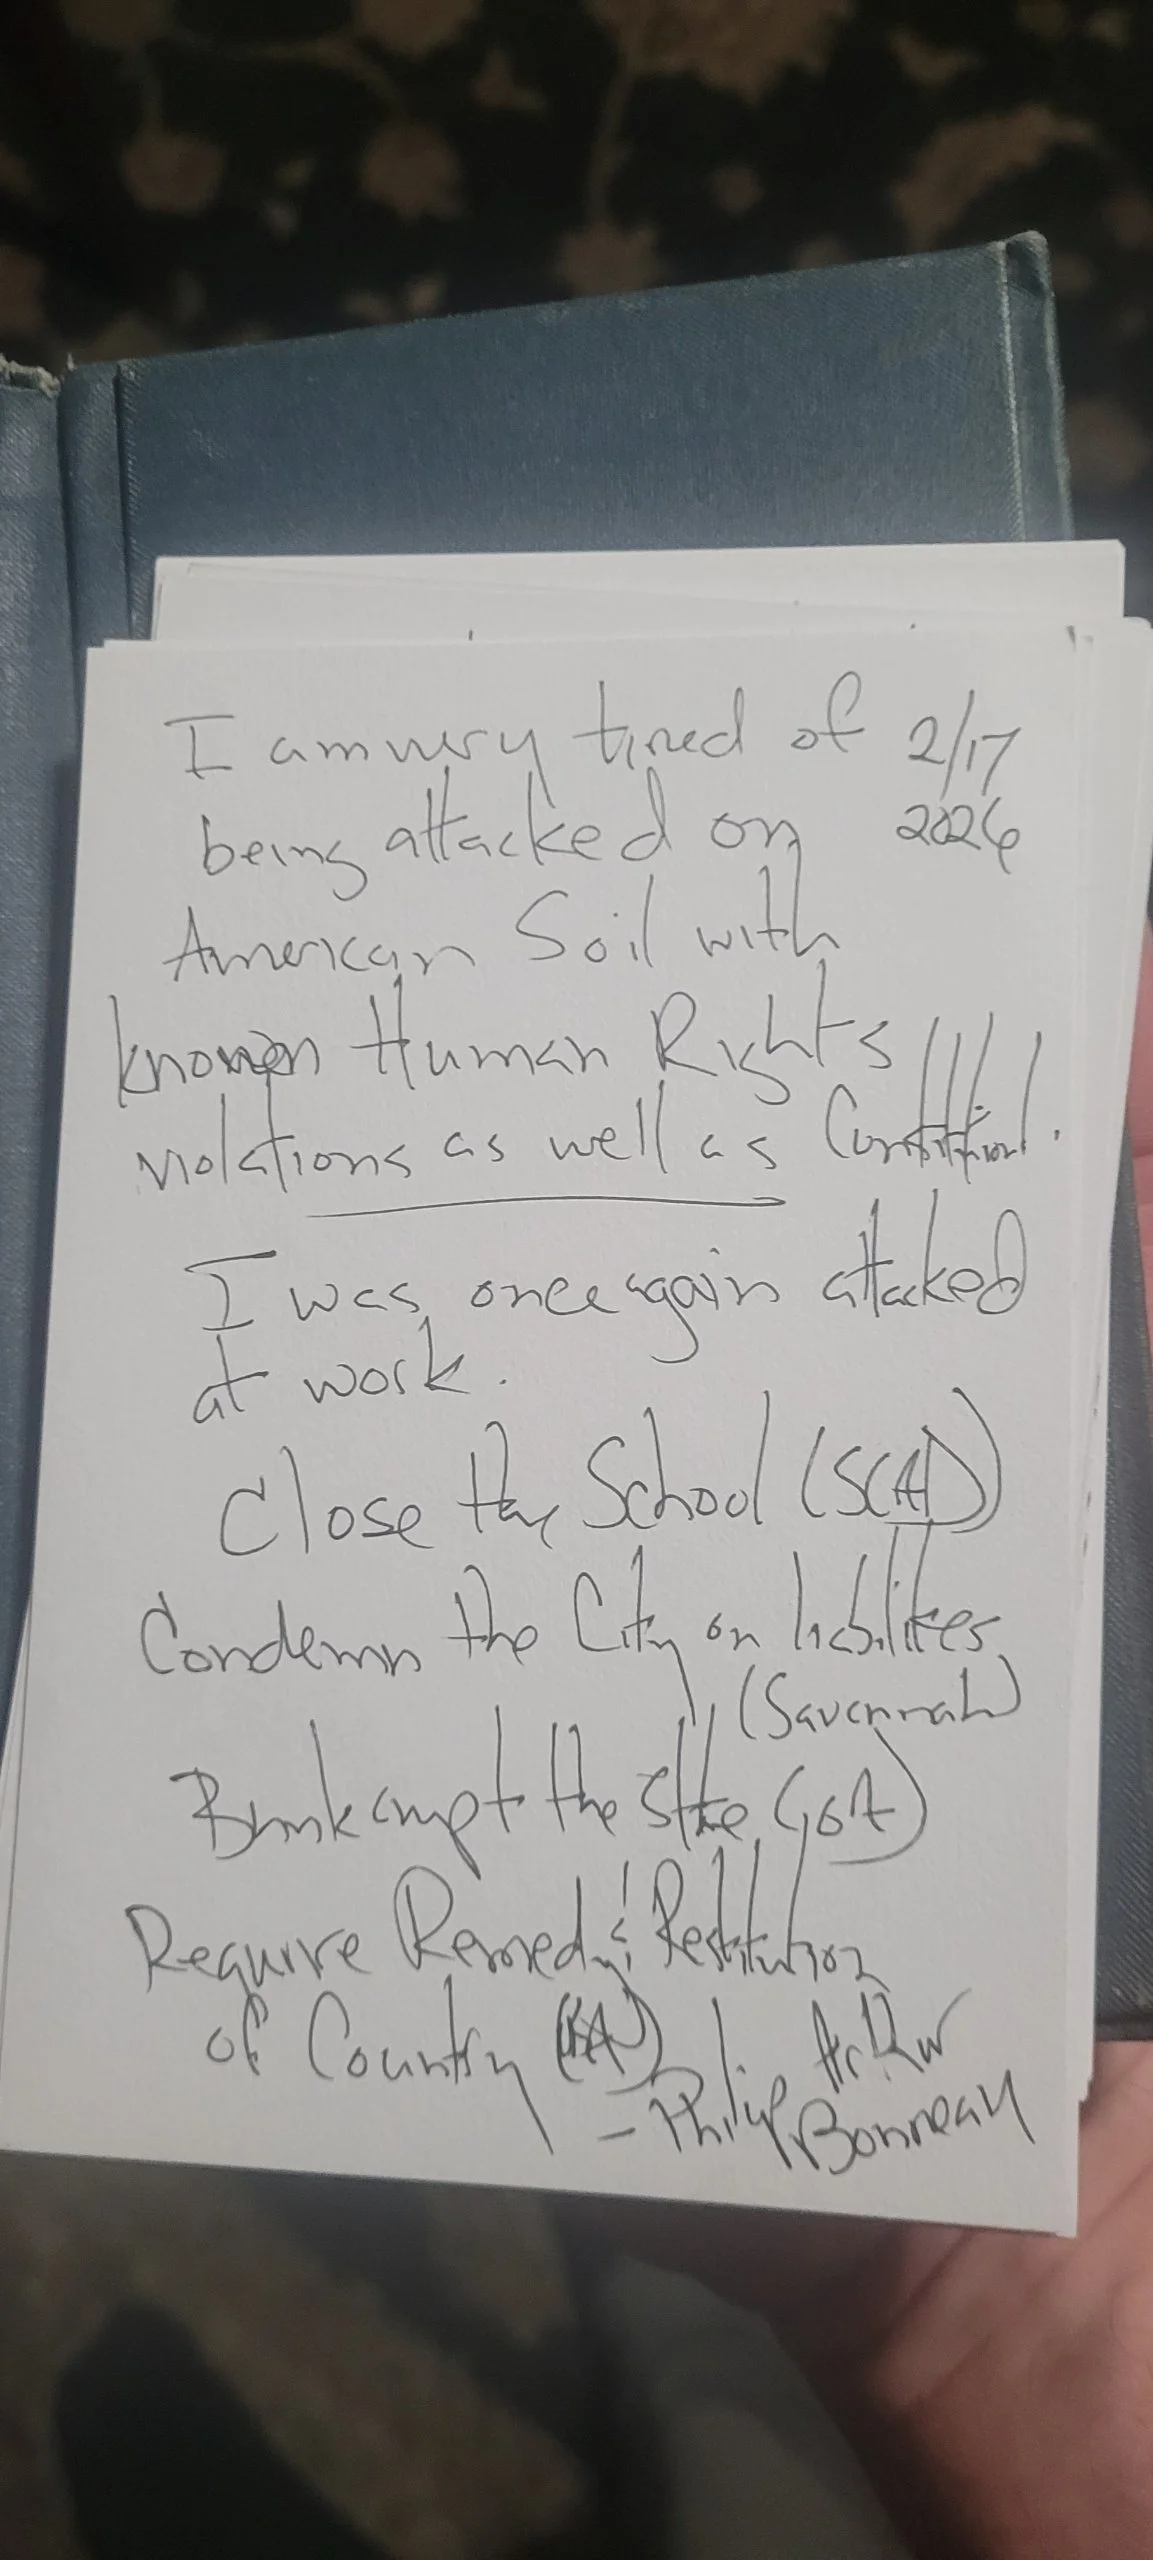 I am very tired of 2/17
being attacked on 2026
American Soil with
known Human Rights
violations as well as Constitutional.
I was once again attacked
at work.
Close the School (SCAD)
Condemn the City on liabilities
(Savannah)
Bankrupt the State (GA)
Require Remedy & Restitution
of Country
- Philip Arthur
Bonneau